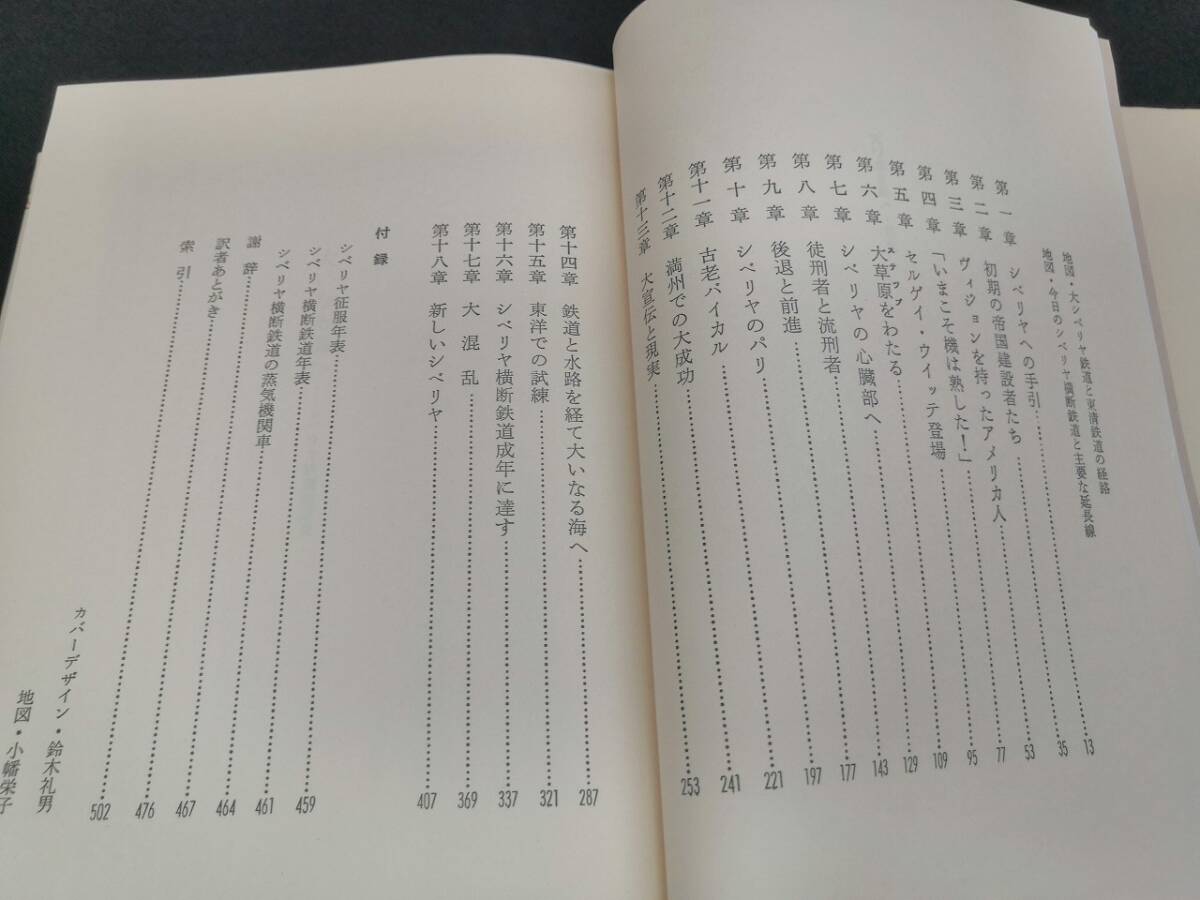 地図・大シベリヤ鉄道と東清鉄道の経路
地図・今日のシベリヤ横断鉄道と主要な延長線
第一章 シベリヤへの手引……13
第二章 初期の帝国建設者たち……35
第三章 ヴィジョンを持ったアメリカ人……53
第四章 「いまこそ機は熟した！」……77
第五章 セルゲイ・ウイッテ登場……95
第六章 大草原をわたる……109
ステップ
第七章 シベリヤの心臓部へ……129
第八章 徒刑者と流刑者……143
第九章 後退と前進……177
第十章 シベリヤのパリ……197
第十一章 古老バイカル……221
第十二章 満州での大成功……241
第十三章 大宣伝と現実……253
第十四章 鉄道と水路を経て大いなる海へ……287
第十五章 東洋での試練……321
第十六章 シベリヤ横断鉄道成年に達す……337
第十七章 大混乱……369
第十八章 新しいシベリヤ……407
付録
シベリヤ征服年表……459
シベリヤ横断鉄道年表……461
シベリヤ横断鉄道の蒸気機関車……464
謝辞……467
訳者あとがき……476
索引……502
カバーデザイン・鈴木礼男
地図・小幡栄子